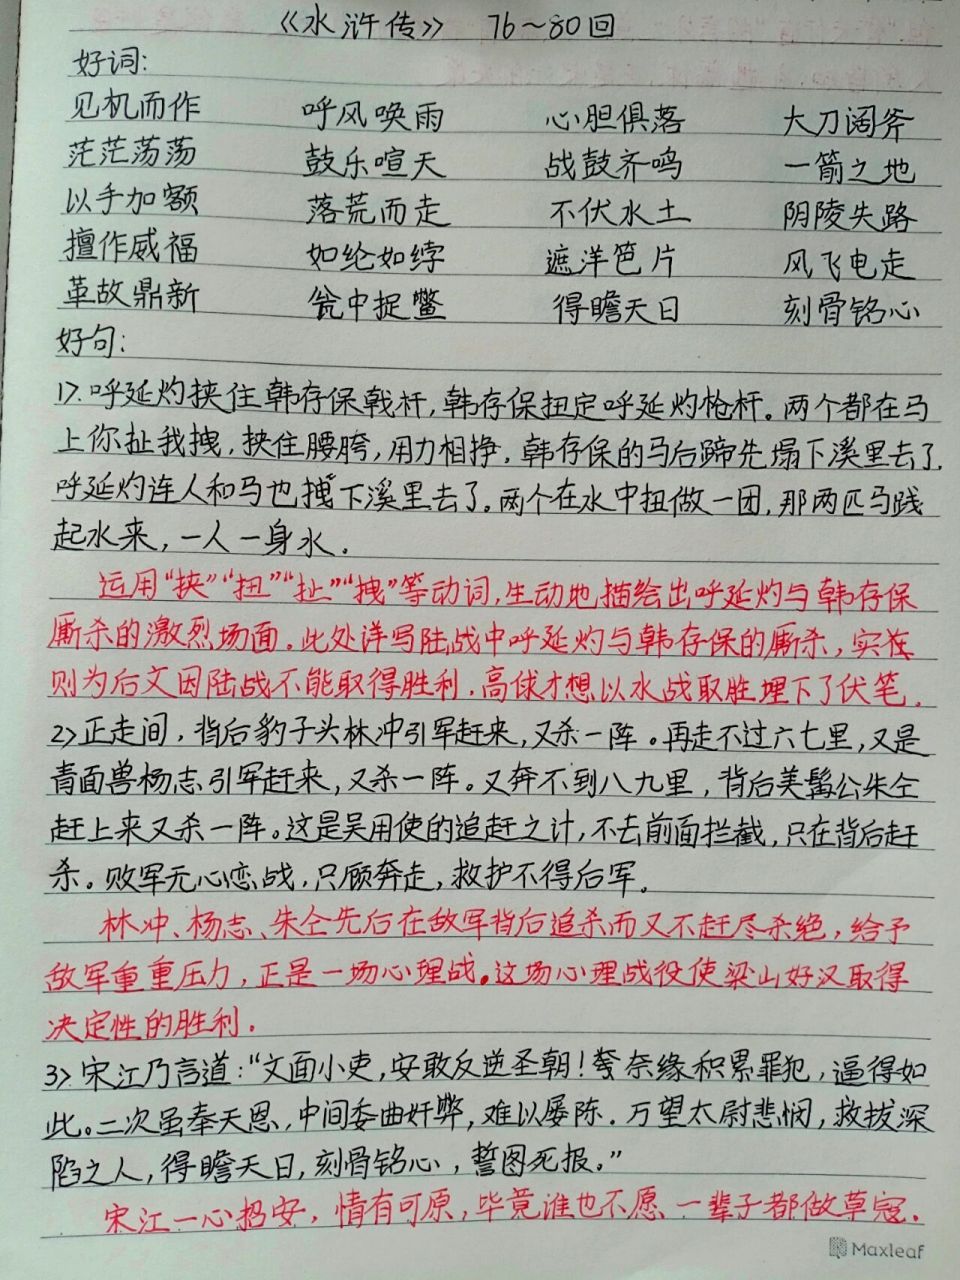 《水浒传》 76～80回
好词:
见机而作 呼风唤雨 心胆俱落 大刀阔斧
茫茫荡荡 鼓乐喧天 战鼓齐鸣 一箭之地
以手加额 落荒而走 不伏水土 阴陵失路
擅作威福 如纶如綍 遮洋笆片 风飞电走
革故鼎新 瓮中捉鳖 得瞻天日 刻骨铭心
好句:
1>.呼延灼挟住韩存保戟杆,韩存保扭定呼延灼枪杆。两个都在马
上你扯我拽,挟住腰胯,用力相挣.韩存保的马后蹄先塌下溪里去了.
呼延灼连人和马也拽下溪里去了。两个在水中扭做一团,那两匹马践
起水来,一人一身水.
运用“挟”“扭”“扯”“拽”等动词,生动地描绘出呼延灼与韩存保
厮杀的激烈场面.此处详写陆战中呼延灼与韩存保的厮杀,实在
则为后文因陆战不能取得胜利,高俅才想以水战取胜埋下了伏笔.
2>正走间,背后豹子头林冲引军赶来,又杀一阵。再走不过六七里,又是
青面兽杨志引军赶来,又杀一阵。又奔不到八九里,背后美髯公朱仝
赶上来又杀一阵。这是吴用使的追赶之计,不去前面拦截,只在背后赶
杀。败军无心恋战,只顾奔走,救护不得后军。
林冲、杨志、朱仝先后在敌军背后追杀而又不赶尽杀绝,给予
敌军重重压力,正是一场心理战。这场心理战役使梁山好汉取得
决定性的胜利.
3>宋江乃言道:“文面小吏,安敢反逆圣朝!奈缘积累罪犯,逼得如
此。二次虽奉天恩,中间委曲奸弊,难以屡陈.万望太尉悲悯,救拔深
陷之人,得瞻天日,刻骨铭心,誓图死报。”
宋江一心招安,情有可原,毕竟谁也不愿一辈子都做草寇.
Maxleaf